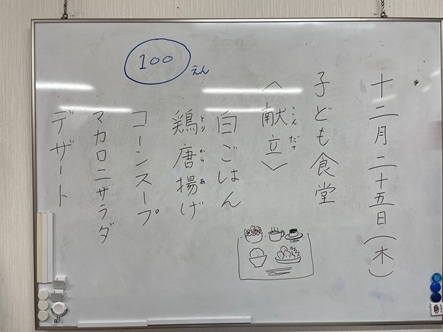 十二月二十五日(木)
子ども食堂
〈献立〉
こんだて
白ごはん
鶏唐揚げ
とりからあ
コーンスープ
マカロニサラダ
デザート
100えん